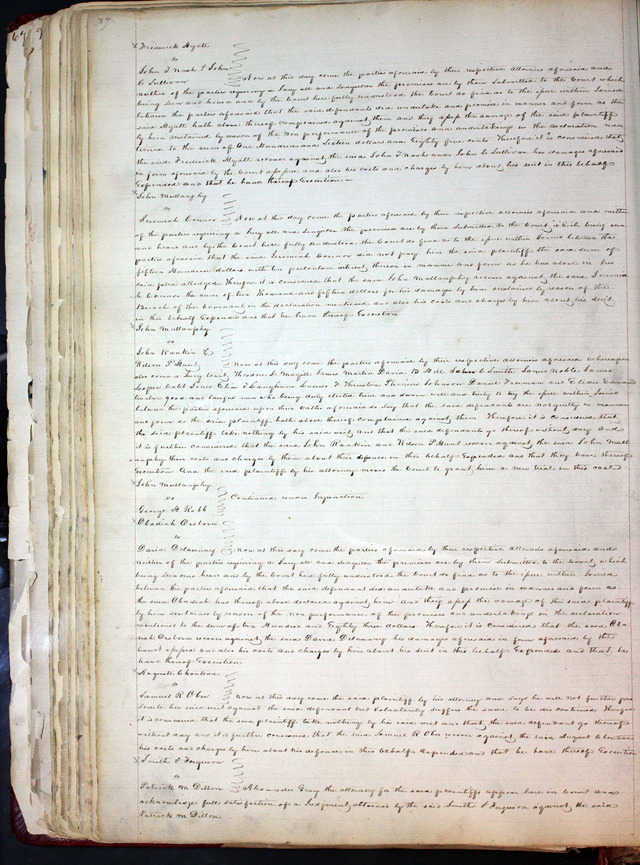 67
Frederick Hyatt
vs
John F Nash & John
C Sullivan Now at this day come the parties aforesaid by their respective attornies aforesaid and
neither of the parties requiring a Jury all and Singular the premises are by them Submitted to the Court which
being Seen and heard and by the Court here fully understood the Court do find as to the issue within Joined
between the parties aforesaid that the said defendants did undertake and promise in manner and form as the
said Hyatt hath above thereof complained against them and they assess the damage of the said plaintiff
by him sustained by reason of the Non performance of the promises and undertakings in the declaration men
tioned to the sum of One Hundred and Sixteen dollars and Eighty five cents Therefore it is considered that
the said Frederick Hyatt recover against the said John F Nash and John C Sullivan his damages aforesaid
in form aforesaid by the Court assessed and also his costs and charges by him about his suit in this behalf
Expended and that he have thereof Execution
John Mullanphy
vs
Jeremiah Connor Now at this day come the parties aforesaid by their respective attornies aforesaid and neither
of the parties requiring a Jury all and Singular the premises are by them Submitted to the Court which being seen
and heard and by the Court here fully understood the Court do find as to the issue within Joined between the
parties aforesaid that the said Jeremiah Connor did not pay him the said plaintiff the said sum of
fifteen Hundred dollars with ten per centum interest thereon in manner and form as he has above in his
said plea alledged Therefore it is considered that the said John Mullanphy recover against the said Jeremiah
Connor the sum of two Thousand and fifteen dollars for his damages by him sustained by reason of the
Breach of the Covenant in the declaration mentioned and also his costs and charges by him about his suit
in this behalf Expended and that he have thereof Execution
John Mullanphy
vs
John Rankin &
Wilson P Hunt Now at this day come the parties aforesaid by their respective attornies aforesaid whereupon
also come a Jury to wit, Theodore L Magill James Morton David B Hill John C Smith James Noble James
Loper Caleb Jones Elias T Langham Lewis F Thruston Phineas Johnson Daniel Freeman and
twelve good and lawful men who being duly elected tried and sworn well and truly to try the issue within Joined
between the parties aforesaid upon their Oaths aforesaid do Say that the said defendants are not guilty in manner
and form as the said plaintiff hath above thereof complained against them Therefore it is considered that
the said plaintiff take nothing by his said writ and that the said defendants go thereof without day and
it is further considered that the said John Rankin and Wilson P Hunt recover against the said John Mull
anphy their costs and charges by them about their defence in this behalf Expended and that they have thereof
Execution And the said plaintiff by his attorney moves the Court to grant him a new trial in this case
John Mullanphy
vs Continued under Injunction
George H Robb
Obadiah Osborn
vs
David Delaunay Now at this day come the parties aforesaid by their respective attornies aforesaid and
neither of the parties requiring a Jury all and Singular the premises are by them Submitted to the Court which
being Seen and heard and by the Court here fully understood the Court do find as to the issue within Joined
between the parties aforesaid that the said defendant did undertake and promise in manner and form as
the said Obadiah has thereof above declared against him and they assess the damage of the said plaintiff
by him sustained by reason of the non performance of the promises and undertakings in the declaration
mentioned to the sum of two Hundred and Eighty three dollars Therefore it is considered that the said Oba
diah Osborn recover against the said David Delaunay his damages aforesaid in form aforesaid by the
Court assessed and also his costs and charges by him about his suit in this behalf Expended and that he
have thereof Execution
Auguste Chouteau
vs
Samuel R Ober Now at this day come the said plaintiff by his attorney and says he will not further pro
secute his said suit against the said defendant but voluntarily suffers the same to be discontinued Therefore
it is considered that the said plaintiff take nothing by his said writ and that the said defendant go thereof
without day and it is further considered that the said Samuel R Ober recover against the said August Chouteau
his costs and charges by him about his defence in this behalf Expended and that he have thereof Execution
Smith & Ferguson
vs
Patrick M Dillon Alexander Gray the attorney for the said plaintiffs appear here in Court and
acknowledge full satisfaction of a Judgment attained by the said Smith & Ferguson against the said
Patrick M Dillon